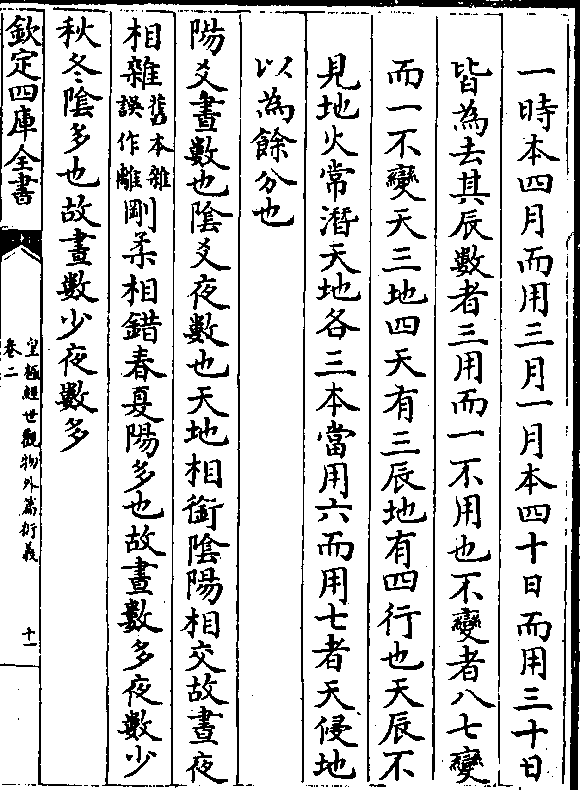 一時本四月而用三月一月本四十日而用三十日
皆為去其辰數者三用而一不用也不變者八七變
而一不變天三地四天有三辰地有四行也天辰不
見地火常潛天地各三本當用六而用七者天侵地
以為餘分也
陽爻晝數也陰爻夜數也天地相銜陰陽相交故晝夜
相雜舊本雜誤作離剛柔相錯春夏陽多也故晝數多夜數少
秋冬陰多也故晝數少夜數多
欽定四庫全書
皇極經世觀物外篇衍義
卷二
十一